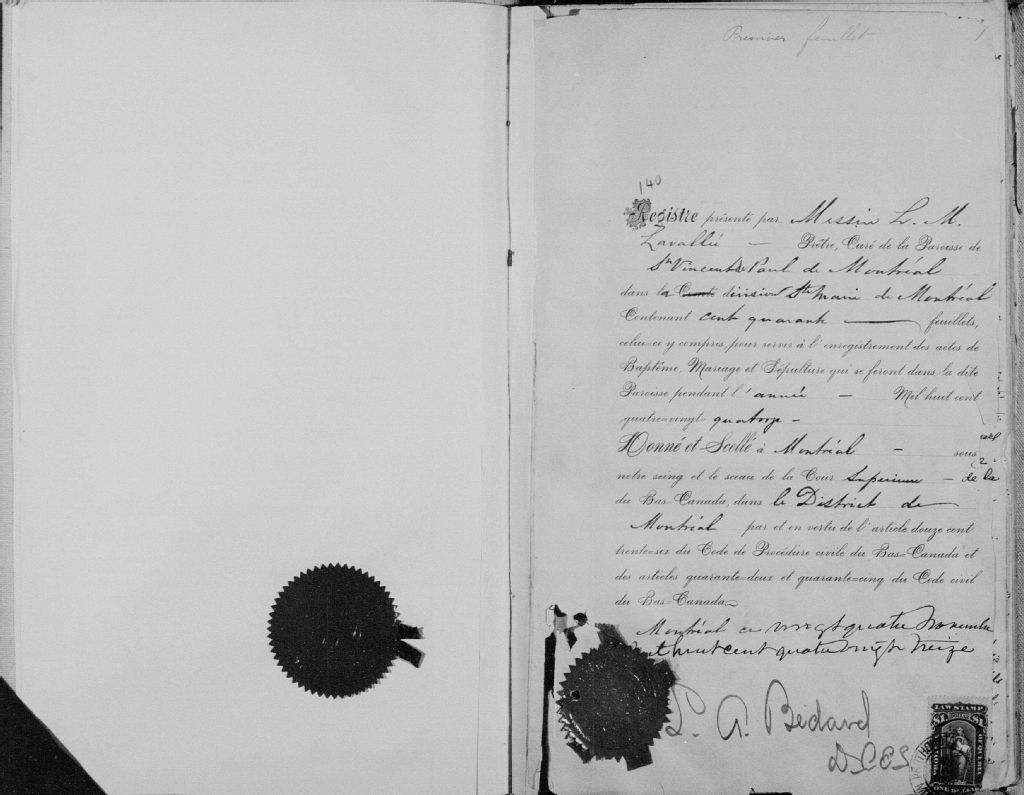 Premier feuillet
140
Registre présenté par Messire L. M.
Lavallée — Prêtre, Curé de la Paroisse de
St Vincent de Paul de Montréal
dans la Comté division Ste Marie de Montréal
Contenant cent quarante — feuillets,
celui-ci y compris, pour servir à l'enregistrement des actes de
Baptême, Mariage et Sépulture qui se feront dans la dite
Paroisse pendant l'année — Mil huit cent
quatre=vingt= quatorze —
Donné et Scellé à Montréal — sous
notre seing et le sceau de la Cour Supérieure — de la
du Bas-Canada, dans le District de
Montréal par et en vertu de l'article douze cent
trente=six du Code de Procédure civile du Bas=Canada et
des articles quarante=deux et quarante=cinq du Code civil
du Bas=Canada
Montréal ce vingt quatre Novembre
huit cent quatre vingt treize
L. A. Bédard
D.C.C.S.
LAW STAMP
$1 $1
ONE DOLLAR